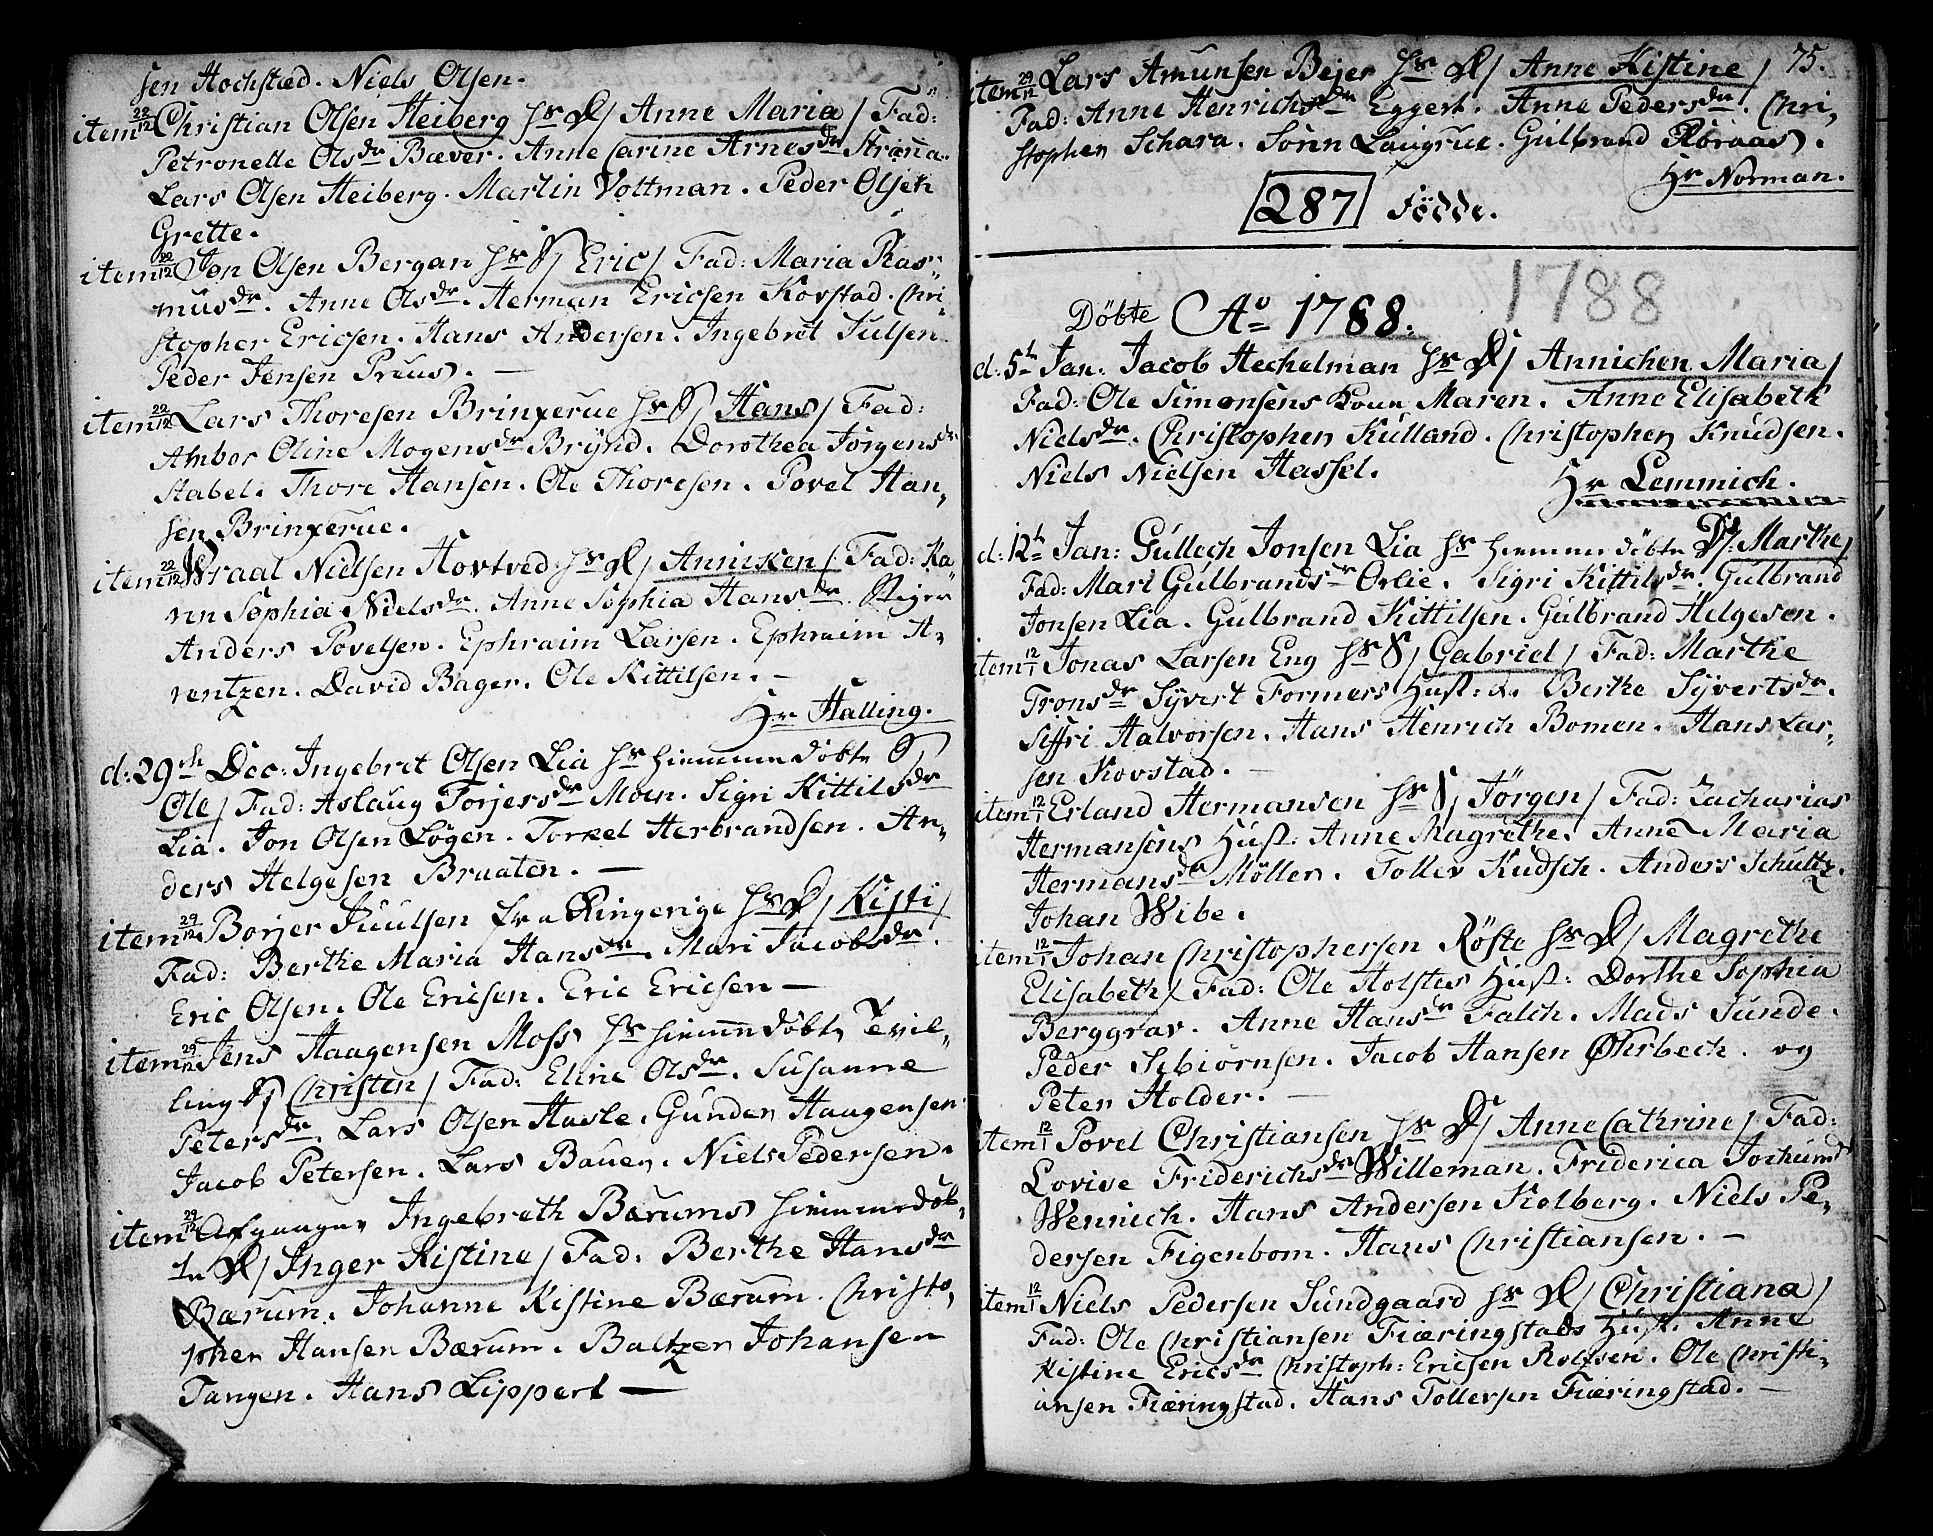 sen Hochstæd. Niels Olsen.
item 22/12 Christian Olsen Heiberg hs D/ Anne Maria / Fad:
Petronelle Olsdr Bæver. Anne Carine Arnesdr
Lars Olsen Heiberg. Martin Voltman. Peder Olsen
Grette.
item 22/12 Jon Olsen Bergan hs S/ Eric / Fad: Maria Ras-
musdr. Anne Olsdr. Herman Ericsen Kovstad. Chri-
stopher Ericsen. Hans Andersen. Ingebret Julsen
Peder Jensen Pruus. —
item 22/12 Lars Thoresen Brinxerue hs S/ Hans / Fad:
Ambor Oline Mogensdr Brÿnd. Dorothea Jørgensdr
Stabel. Thore Hansen. Ole Thoresen. Povel Han-
sen Brinxerue.
item 22/12 Wraal Nielsen Hovtved hs D/ Annicken / Fad: Ka-
ren Sophia Nielsdr. Anne Sophia Hansdr. Stiger
Anders Povelsen. Ephraim Larsen. Ephraim A-
rentzen. David Bager. Ole Kittilsen. —
Hr Halling.
d: 29de Dec: Ingebret Olsen Lia hs hiemmedöbte S/
Ole / Fad: Aslaug Torjersdr Moen. Sigri Kittilsdr
Lia. Jon Olsen Løgen. Torkel Herbrandsen. An-
ders Helgesen Braaten. —
item 29/12 Borjer Juulsen fra Ringerige hs D/ Kisti /
Fad: Berthe Maria Hansdr. Mari Jacobsdr.
Eric Olsen. Ole Ericsen. Eric Ericsen —
item 29/12 Jens Haagensen Moss hs hiemmedöbte Tvil-
ling S/ Christen / Fad: Eline Olsdr. Susanne
Petersdr. Lars Olsen Hasle. Gunder Haagensen
Jacob Petersen. Lars Bauer. Niels Pedersen.
item 29/12 Afgangne Ingebreth Bærums hiemmedöb-
te D/ Inger Kistine / Fad: Berthe Hansdr
Bærum. Johanne Kistine Bærum. Christo-
pher Hansen Bærum. Baltzer Johansen
Tangen. Hans Lippert —
75.
item 29/12 Lars Amunsen Bejer hs D/ Anne Kistine /
Fad: Anne Henrichsdr Eggert. Anne Pedersdr. Chri-
stopher Schara. Sönn Laugrue. Gulbrand Röraas.
Hr Norman.
287 Födde.
Döbte Ao 1788. 1788
d: 5te Jan: Jacob Hechelman hs D/ Annichen Maria /
Fad: Ole Simonsens Kone Maren. Anne Elisabeth
Nielsdr. Christopher Kulland. Christopher Knudsen.
Niels Nielsen Hassel.
Hr Lemmich.
d: 12te Jan: Gullech Jonsen Lia hs hiemmedöbte D/ Marthe /
Fad: Mari Gulbrandsdr Orlie. Sigri Kittilsdr. Gulbrand
Jonsen Lia. Gulbrand Kittilsen. Gulbrand Helgesen.
item 12/1 Jonas Larsen Eng hs S/ Gabriel / Fad: Marthe
Tronsdr Syvert Formers Hust: Berthe Sÿvertsdr.
Siffri Halvorsen. Hans Henrich Bomen. Hans Lar-
sen Kovstad. —
item 12/1 Erland Hermansen hs S/ Jörgen / Fad: Zacharias
Hermansens Hust: Anne Magrethe. Anne Maria
Hermansdr Möller. Toller Kudsch. Anders Schultz.
Johan Wibe.
item 12/1 Johan Christophersen Röste hs D/ Magrethe
Elisabeth / Fad: Ole Holstes Hust: Dorthe Sophia
Berggrav. Anne Hansdr Falch. Mads Sunde.
Peder Esbiörnsen. Jacob Hansen Öhrbech. og
Peter Holder. —
item 12/1 Povel Christiansen hs D/ Anne Cathrine / Fad:
Lovise Friderichsdr Willeman. Friderica Jochumdr
Wennich. Hans Andersen Kolberg. Niels Pe-
dersen Figenbom. Hans Christiansen. —
item 12/1 Niels Pedersen Sundgaard hs D/ Christiana /
Fad: Ole Christiansen Fiæringstads Hust. Anne
Kistine Ericsdr Christoph: Ericsen Rolfsen. Ole Christi-
ansen Fiæringstad. Hans Tollersen Fiæringstad. —